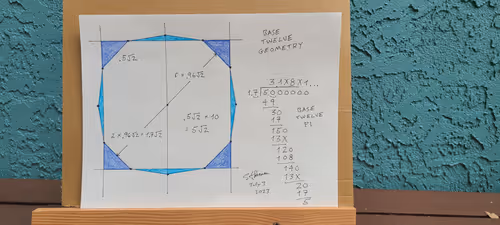 BASE
TWELVE
GEOMETRY
.5√2
r = .96√2
.5√2 × 10
= 5√2
2 × .96√2 = 1.7√2
3.1X8X1...
1.7√5.000000
49
30
17
150
13X
120
108
140
13X
20
17
5
BASE
TWELVE
PI
JULY
2023